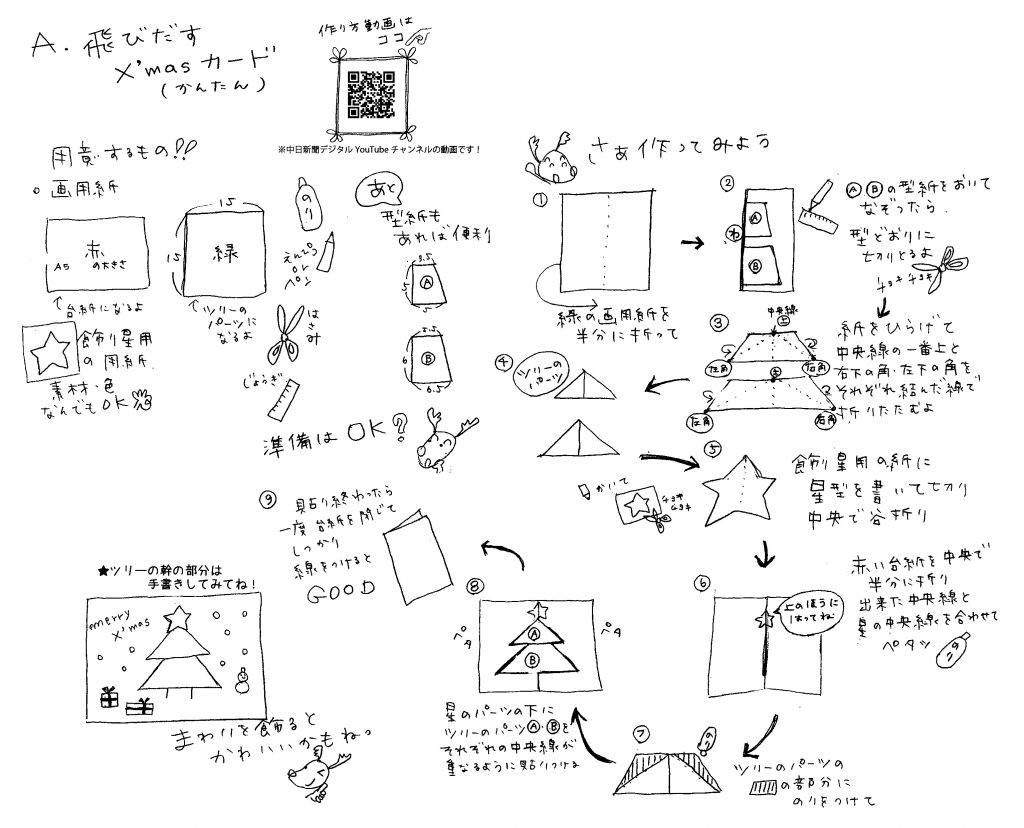 A. 飛びだす
X'mas カード
(かんたん)
作り方動画は
ココ
※中日新聞デジタル YouTube チャンネルの動画です！
用意するもの!!
○ 画用紙
赤
A5 の大きさ
↑台紙になるよ
15
15
緑
↑ツリーの
パーツに
なるよ
のり
えんぴつ
or
ペン
はさみ
じょうぎ
飾り星用
の用紙
素材・色
なんでもOK
あと
型紙も
あれば便利
3.5
5
Ⓐ
5
Ⓑ
6
6.5
準備はOK?
さあ作ってみよう
①
緑の画用紙を
半分に折って
②
わ
Ⓐ
Ⓑ
ⒶⒷの型紙をおいて
なぞったら
型どおりに
切りとるよ
チョキチョキ
③
中央線
上
左角
右角
上
左角
右角
紙をひらげて
中央線の一番上と
右下の角・左下の角を
それぞれ結んだ線で
折りたたむよ
④
ツリーの
パーツ
⑤
かいて
チョキ
チョキ
飾り星用の紙に
星型を書いて切り
中央で谷折り
⑥
上のほうに
はってね
赤い台紙を中央で
半分に折り
出来た中央線と
星の中央線を合わせて
ペタッ
のり
⑦
のり
ツリーのパーツの
の部分に
のりをつけて
⑧
ペタ
ペタ
Ⓐ
Ⓑ
星のパーツの下に
ツリーのパーツⒶ・Ⓑを
それぞれの中央線が
重なるように貼りつける
⑨
貼り終わったら
一度台紙を閉じて
しっかり
線をつけると
GOOD
★ツリーの幹の部分は
手書きしてみてね！
merry
X'mas
まわりを飾ると
かわいいかもねっ